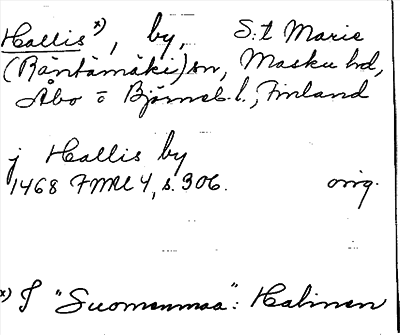 Hallis x), by, S:t Marie
(Räntämäki) sn, Masku hd,
Åbo o Björneb. l., Finland
j Hallis by
1468 FMU 4, s. 306. orig.
x) I "Suomenmaa": Halinen